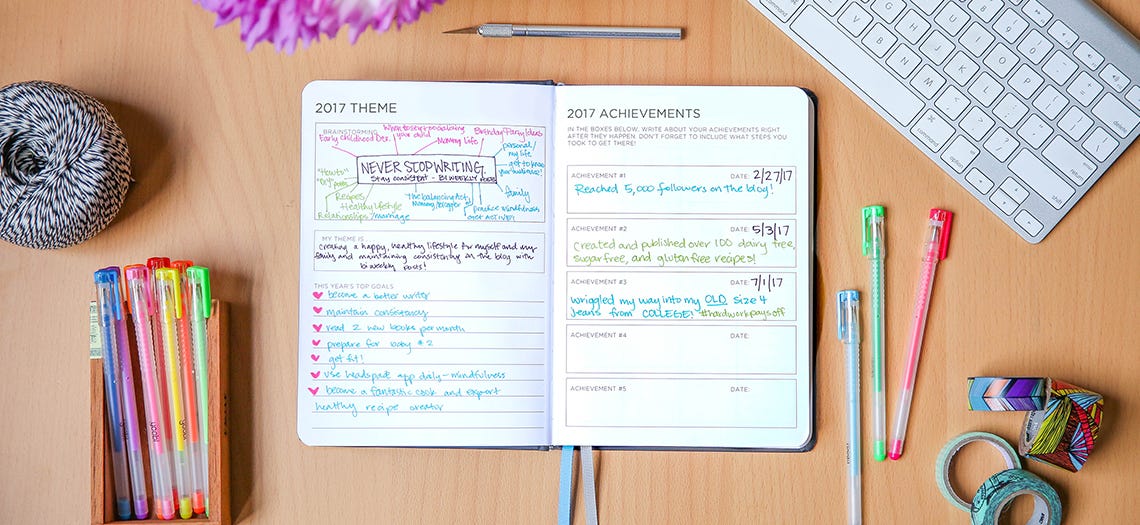 2017 THEME
BRAINSTORMING
Early childhood Dev.
your child
Mommy life
Birthday/Party Ideas
personal/
my life
get to know
NEVER STOP WRITING.
Stay consistent - BI WEEKLY posts
"How to's"
"DIY posts"
Recipes
Healthy lifestyle
Relationships/marriage
The balancing Act,
Mommy/blogger
family
practice mindfulness
Get ACTIVE!
MY THEME IS
creating a happy, healthy lifestyle for myself and my
family and maintaining consistency on the blog with
bi weekly posts!
THIS YEAR'S TOP GOALS
become a better writer
maintain consistency
read 2 new books per month
prepare for baby #2
get fit!
use headspace app daily - mindfulness
become a fantastic cook and expert
healthy recipe creator
2017 ACHIEVEMENTS
IN THE BOXES BELOW, WRITE ABOUT YOUR ACHIEVEMENTS RIGHT
AFTER THEY HAPPEN. DON'T FORGET TO INCLUDE WHAT STEPS YOU
TOOK TO GET THERE!
ACHIEVEMENT #1 DATE: 2/27/17
Reached 5,000 followers on the blog!
ACHIEVEMENT #2 DATE: 5/3/17
Created and published over 100 dairy free,
sugar free, and gluten free recipes!
ACHIEVEMENT #3 DATE: 7/1/17
wriggled my way into my OLD size 4
jeans from COLLEGE! #hardworkpaysoff
ACHIEVEMENT #4 DATE:
ACHIEVEMENT #5 DATE:
command
option